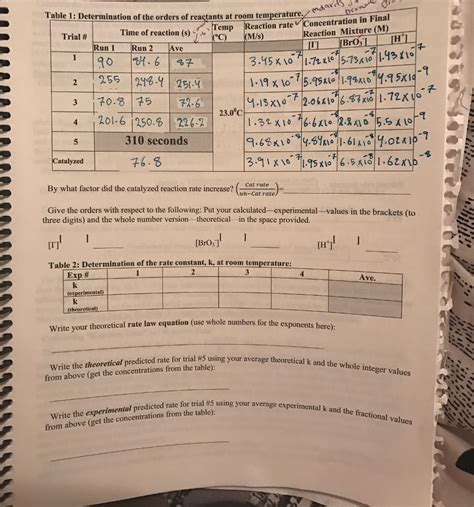 Table 1: Determination of the orders of reactants at room temperature.
Trial # Time of reaction (s) Temp (°C) Reaction rate (M/s) Concentration in Final Reaction Mixture (M)
Run 1 Run 2 Ave [I⁻] [BrO₃⁻] [H⁺]
1 90 84.6 87 3.45x10⁻⁷ 1.72x10⁻⁷ 5.75x10⁻⁸ 1.43x10⁻⁷
2 255 248.4 251.4 1.19x10⁻⁷ 5.95x10⁻⁸ 1.99x10⁻⁸ 4.95x10⁻⁹
3 70.8 75 72.6 23.0⁰C 4.13x10⁻⁷ 2.06x10⁻⁷ 6.87x10⁻⁸ 1.72x10⁻⁷
4 201.6 250.8 226.2 1.32x10⁻⁷ 6.6x10⁻⁸ 2.2x10⁻⁸ 5.5x10⁻⁹
5 310 seconds 9.68x10⁻⁸ 4.84x10⁻⁸ 1.61x10⁻⁸ 4.02x10⁻⁹
Catalyzed 76.8 3.91x10⁻⁷ 1.95x10⁻⁷ 6.5x10⁻⁸ 1.62x10⁻⁸
By what factor did the catalyzed reaction rate increase? (Cat rate / un-Cat rate)=
Give the orders with respect to the following: Put your calculated—experimental—values in the brackets (to
three digits) and the whole number version—theoretical—in the space provided.
[I⁻] [BrO₃⁻] [H⁺]
Table 2: Determination of the rate constant, k, at room temperature:
Exp # 1 2 3 4 Ave.
k
(experimental)
k
(theoretical)
Write your theoretical rate law equation (use whole numbers for the exponents here):
Write the theoretical predicted rate for trial #5 using your average theoretical k and the whole integer values
from above (get the concentrations from the table):
Write the experimental predicted rate for trial #5 using your average experimental k and the fractional values
from above (get the concentrations from the table):